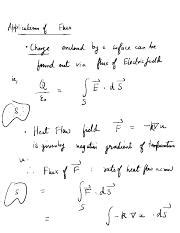 Applications of Flux
• Charge enclosed by a surface can be
found out via flux of Electric field
is, Q/ε₀ = ∫_S E⃗ · dS⃗
S
• Heat Flow field F⃗ = -k∇u
is given by negative gradient of temperature
u.
∴ Flux of F⃗ : rate of heat flow across
S = ∫_S F⃗ · dS⃗
= ∫ -k ∇u · dS⃗